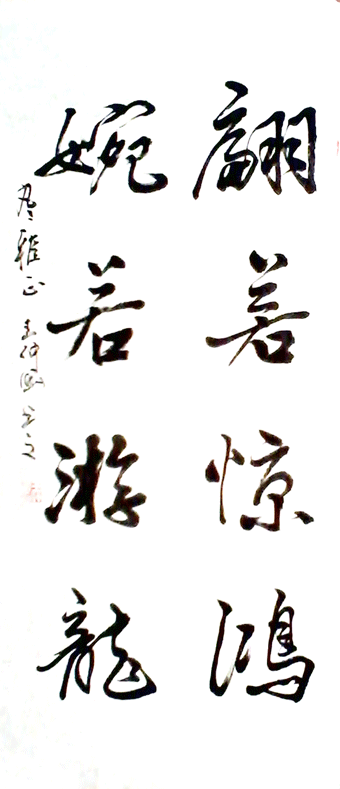 翩若惊鸿
婉若游龙
雅正